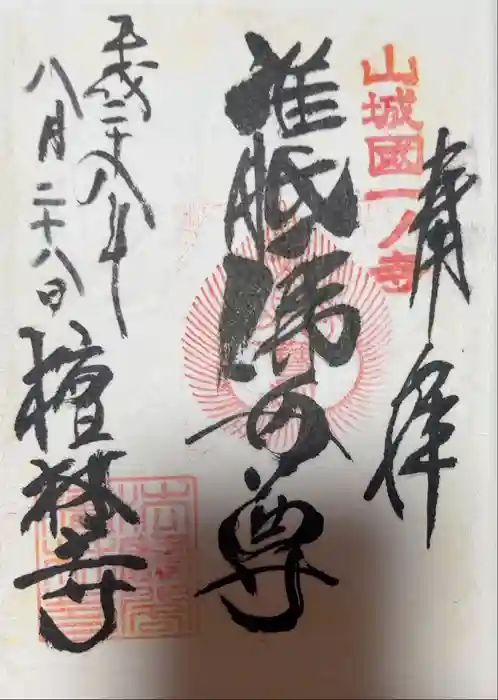 奉拝
山城國一ノ寺
准胝佛母尊
平成二十八年
八月二十八日
檀林寺